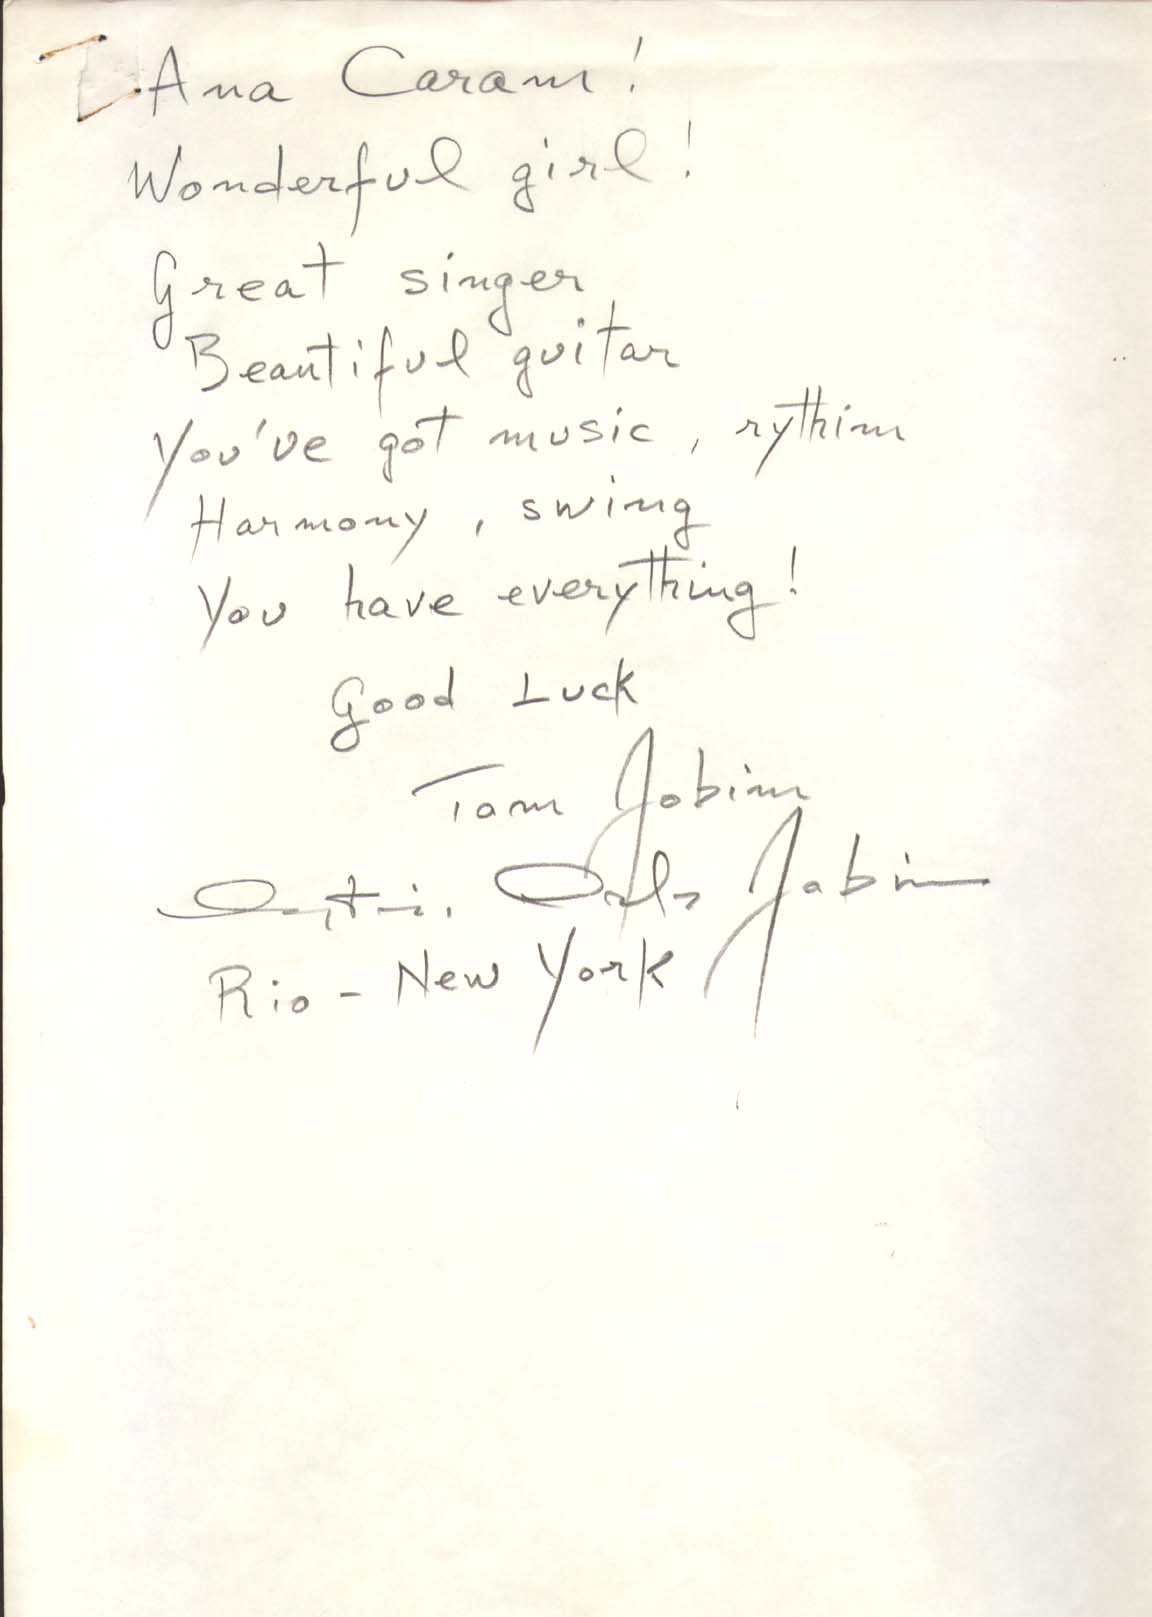 Ana Caram!
Wonderful girl!
Great singer
Beautiful guitar
You've got music, rythim
Harmony, swing
You have everything!
Good Luck
Tom Jobim
Jobim
Rio - New York